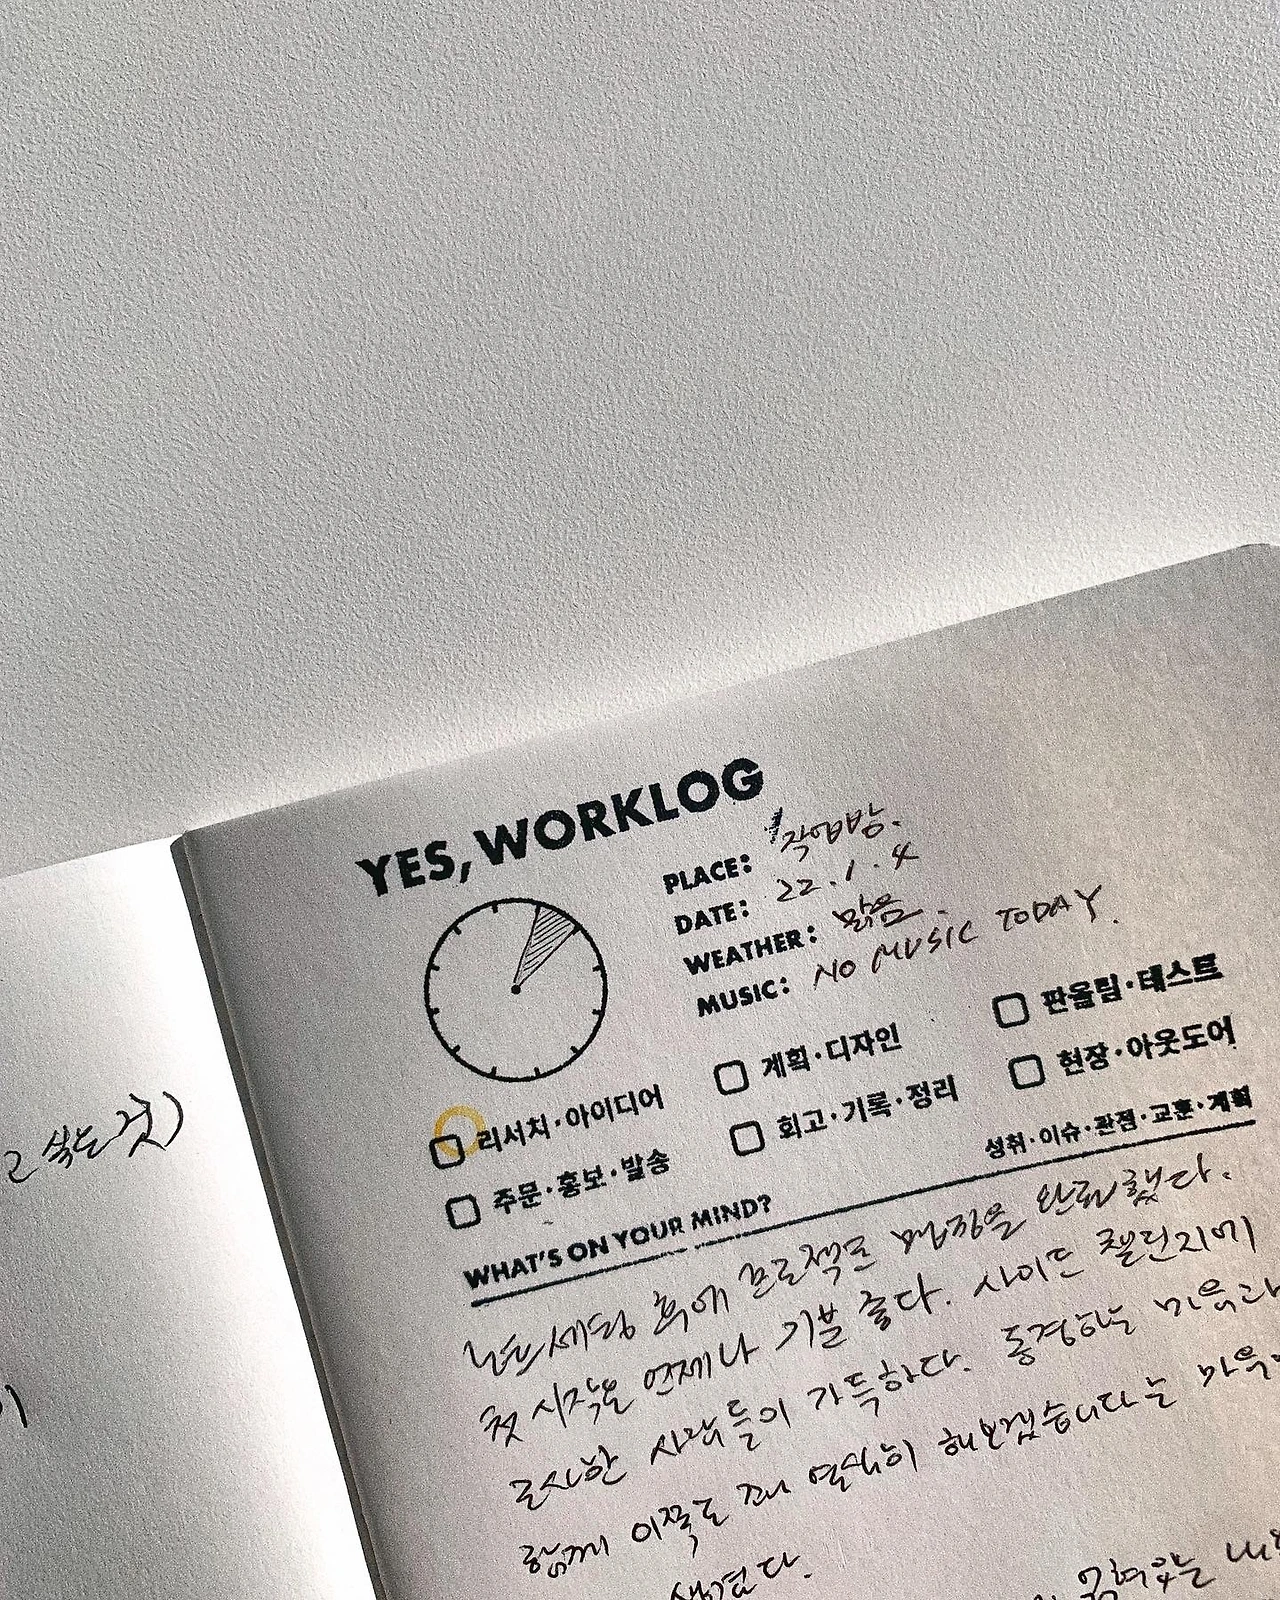 YES, WORKLOG
PLACE: 작업방.
DATE: 22.1.4
WEATHER: 맑음.
MUSIC: NO MUSIC TODAY.
리서치·아이디어
계획·디자인
판올림·테스트
주문·홍보·발송
회고·기록·정리
현장·아웃도어
WHAT'S ON YOUR MIND?
성취·이슈·관점·교훈·계획
후에 프로젝트 매장을 완료했다.
첫 시작은 언제나 기분 좋다. 사이드 챌린지에
근사한 사람들이 가득하다. 동경하는 마음과
함께 이쪽도 꽤 열심히 해보겠습니다는 마음
생겼다.